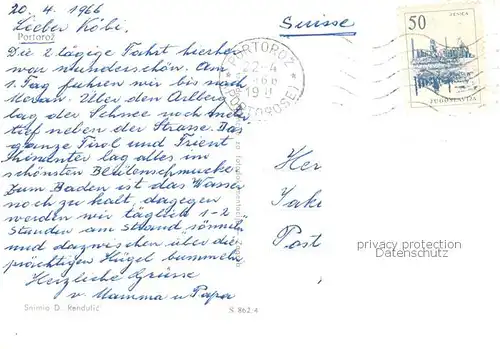 20. 4. 1966
Suisse
Lieber Köbi,
Portorož
Die 2 tägige Fahrt hierher
war wunderschön. Am
1. Tag fuhren wir bis nach
Meran. Über den Arlberg
lag der Schnee noch meter
tief neben der Strasse. Das
ganze Tirol und Trient
hinunter lag alles im
schönsten Blütenschmucke.
Zum Baden ist das Wasser
noch zu kalt, dagegen
werden wir täglich 1-2
Stunden am Strand sönnelen
und dazwischen über die
prächtigen Hügel bummeln
Herzliche Grüsse
v. Mamma u Papa
Snimio D. Rendulić
S. 862 4
50
JESENICE
JUGOSLAVIJA
PORTOROŽ
22-4
19
(PORTOROSE)
Her
Jake
Post
privacy protection
Datenschutz